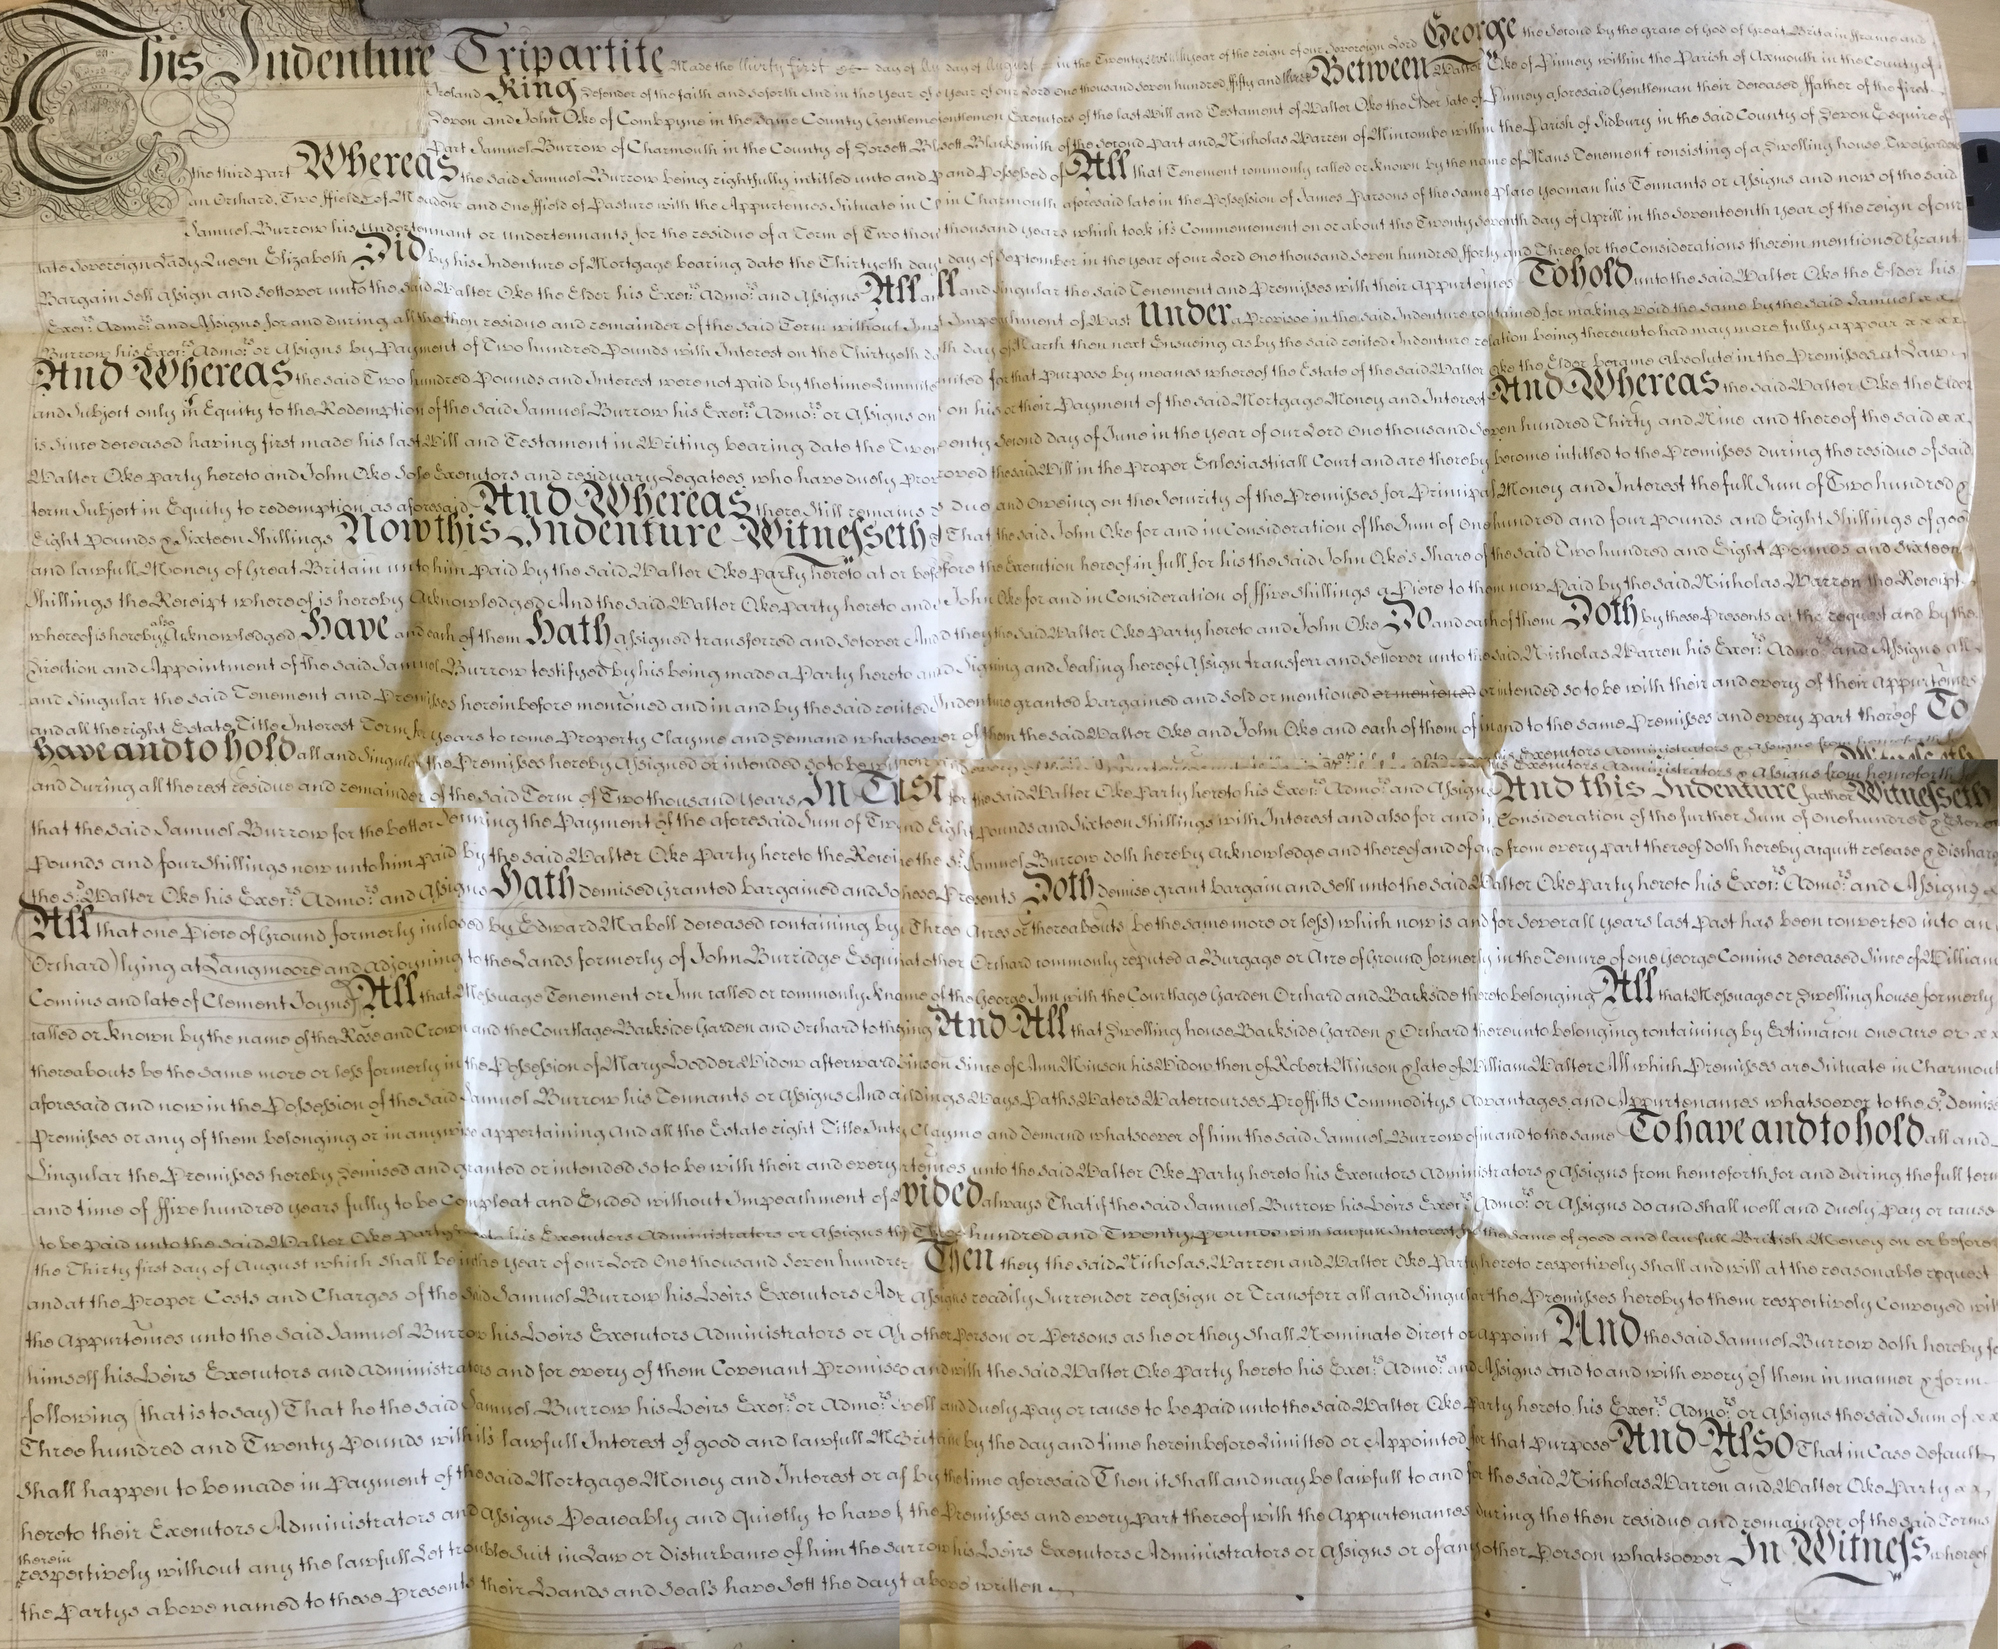 This Indenture Tripartite Made the thirty first day of August in the Twenty year of the reign of our Sovereign Lord George the Second by the grace of God of Great Britain ffrance and
Ireland King Defender of the faith and soforth And in the year of our Lord One thousand seven hundred fifty and three Between Walter Oke of Pinney within the Parish of Axmouth in the County of
Devon and John Oke of Combpyne in the same County Gentlemen Executors of the last Will and Testament of Walter Oke the Elder late of Pinney aforesaid Gentleman their deceased ffather of the first
Part Samuel Burrow of Charmouth in the County of Dorsett Blacksmith of the Second Part and Nicholas Warren of Mincombe within the Parish of Sidbury in the said County of Devon Esquire of
the third part Whereas the said Samuel Burrow being rightfully intitled unto and Possessed of All that Tenement commonly called or known by the name of Mans Tenement consisting of a Dwelling house, Two Gardens
an Orchard, Two ffields of Meadow and one ffield of Pasture with the Appurtences Situate in Charmouth aforesaid late in the Possession of James Parsons of the same place Yeoman his Tennants or Assigns and now of the said
Samuel Burrow his undertennant or undertennants for the residue of a Term of Two thousand years which took it's Commencement on or about the Twenty Seventh day of Aprill in the Seventeenth year of the reign of our
late Sovereign Lady Queen Elizabeth Did by his Indenture of Mortgage bearing date the Thirtyeth day of September in the year of our Lord One thousand seven hundred fforty and Three for the Considerations therein mentioned Grant
Bargain Sell Assign and settover unto the said Walter Oke the Elder his Execrs. Admors. and Assigns All and Singular the said Tenement and Premisses with their Appurtences To hold unto the said Walter Oke the Elder his
Execrs. Admors. and Assigns for and during all the then residue and remainder of the said Term without Impeachment of Wast Under a Provisoe in the said Indenture contained for making void the same by the said Samuel x x
Burrow his Execrs. Admors. or Assigns by Payment of Two hundred Pounds with Interest on the Thirtyeth day of March then next Ensueing as by the said recited Indenture relation being thereunto had may more fully appear x x x x
And Whereas the said Two hundred Pounds and Interest were not paid by the time Limited for that Purpose by means whereof the Estate of the said Walter Oke the Elder became Absolute in the Premisses at Law
and Subject only in Equity to the Redemption of the said Samuel Burrow his Execrs. Admors. or Assigns on his or their Payment of the said Mortgage Money and Interest And Whereas the said Walter Oke the Elder
is since deceased having first made his last Will and Testament in Writing bearing date the Twenty Second day of June in the year of our Lord One thousand Seven hundred Thirty and Nine and thereof the said x x
Walter Oke party hereto and John Oke Sole Executors and residuary Legatees who have duely Proved the said Will in the Proper Ecclesiasticall Court and are thereby become intitled to the Premisses during the residue of said
term Subject in Equity to redemption as aforesaid. And Whereas there Still remains due and Oweing on the Security of the Premisses for Principal Money and Interest the full Sum of Two hundred &
Eight Pounds & Sixteen Shillings Now this Indenture Witnesseth That the said John Oke for and in Consideration of the Sum of One hundred and four Pounds and Eight Shillings of good
and lawfull Money of Great Britain unto him Paid by the said Walter Oke Party hereto at or before the Execution hereof in full for his the said John Oke's Share of the said Two hundred and Eight Pounds and Sixteen
Shillings the Receipt whereof is hereby Acknowledged And the said Walter Oke Party hereto and John Oke for and in Consideration of ffive Shillings a Piece to them now Paid by the said Nicholas Warren the Receipt
whereof is hereby also Acknowledged Have and each of them Hath assigned transferred and setover And they the said Walter Oke Party hereto and John Oke Do and each of them Doth by these Presents at the request and by the
Direction and Appointment of the said Samuel Burrow testifyed by his being made a Party hereto and Signing and Sealing hereof Assign transferr and settover unto the said Nicholas Warren his Execrs. Admors. and Assigns all
and Singular the said Tenement and Premisses hereinbefore mentioned and in and by the said recited Indenture granted bargained and sold or mentioned or mentioned or intended so to be with their and every of their Appurtences
and all the right Estate Title Interest Term for years to come Property Clayme and Demand whatsoever of them the said Walter Oke and John Oke and each of them of in and to the same Premisses and every part thereof To
have and to hold all and Singular the Premisses hereby Assigned or intended so to be his Executors Administrators & Assigns from henceforth
and during all the rest residue and remainder of the said Term of Two thousand years In Trust for the said Walter Oke Party hereto his Execrs. Admors. and Assigns And this Indenture farther Witnesseth
that the said Samuel Burrow for the better Securing the Payment of the aforesaid Sum of Two and Eight Pounds and Sixteen Shillings with Interest and also for and in Consideration of the further Sum of One hundred & Eleven
Pounds and four Shillings now unto him paid by the said Walter Oke Party hereto the Receipt the sd. Samuel Burrow doth hereby Acknowledge and thereof and of and from every part thereof doth hereby acquitt release & discharge
the sd. Walter Oke his Execrs. Admors. and Assigns Hath demised Granted bargained and So these Presents Doth demise grant bargain and sell unto the said Walter Oke Party hereto his Execrs. Admors. and Assigns x
All that one Piece of Ground formerly inclosed by Edward Mabell deceased containing by Three Acres or thereabouts be the same more or less) which now is and for severall years last Past has been converted into an
Orchard) lying at Langmoore and adjoyning to the Lands formerly of John Burridge Esqui that other Orchard commonly reputed a Burgage or Acre of Ground formerly in the Tenure of one George Comins deceased Since of William
Comins and late of Clement Joynes All that Messuage Tenement or Inn called or commonly known name of the George Inn with the Courtlage Garden Orchard and Backside thereto belonging All that Messuage or Dwelling house formerly
called or known by the name of the Rose and Crown and the Courtlage Backside Garden and Orchard to the And All that Dwelling house Backside Garden & Orchard thereunto belonging containing by Estimacon one Acre or x x
thereabouts be the same more or less formerly in the Possession of Mary Hodder Widow afterward Minson Since of Ann Minson his Widow then of Robert Minson & late of William Walter All which Premisses are Situate in Charmouth
aforesaid and now in the Possession of the said Samuel Burrow his Tennants or Assigns And all Ways Paths Waters Watercourses Proffitts Commoditys Advantages and Appurtenances whatsoever to the sd. Demised
Premisses or any of them belonging or in anywise appertaining And all the Estate right Title Inte Clayme and Demand whatsoever of him the said Samuel Burrow of in and to the same To have and to hold all and
Singular the Premisses hereby Demised and granted or intended so to be with their and every unto the said Walter Oke Party hereto his Executors Administrators & Assigns from henceforth for and during the full term
and time of ffive hundred years fully to be Compleat and Ended without Impeachment of vided always That if the said Samuel Burrow his Heirs Execrs. Admors. or Assigns do and shall well and duely Pay or cause
to be paid unto the said Walter Oke party hereto his Executors Administrators or Assigns the Three hundred and Twenty pounds with lawfull Interest for the same of good and lawfull British Money on or before
the Thirty first day of August which shall be in the year of our Lord One thousand Seven hundred Then they the said Nicholas Warren and Walter Oke Party hereto respectively shall and will at the reasonable request
and at the Proper Costs and Charges of the Said Samuel Burrow his Heirs Executors Adm Assigns readily Surrender reassign or Transferr all and Singular the Premisses hereby to them respectively Conveyed with
the Appurtences unto the said Samuel Burrow his Heirs Executors Administrators or As other Person or Persons as he or they shall Nominate direct or appoint And the said Samuel Burrow doth hereby for
himself his Heirs Executors and Administrators and for every of them Covenant Promise and with the said Walter Oke Party hereto his Execrs. Admors. and Assigns and to and with every of them in manner & form
following (that is to say) That he the said Samuel Burrow his Heirs Execrs. or Admors. well and duely pay or cause to be paid unto the said Walter Oke Party hereto his Execrs. Admors. or Assigns the said Sum of x x
Three hundred and Twenty Pounds with it's lawfull Interest of good and lawfull M Brittain by the day and time hereinbefore Limitted or Appointed for that Purpose And Also That in Case default
shall happen to be made in Payment of the said Mortgage Money and Interest or a by the time aforesaid Then it shall and may be lawfull to and for the said Nicholas Warren and Walter Oke Party x x
hereto their Executors Administrators and Assigns Peaceably and Quietly to have the Premisses and every Part thereof with the Appurtenances during the then residue and remainder of the said Terms
therein respectively without any the lawfull Let trouble Suit in Law or disturbance of him the said Burrow his Heirs Executors Administrators or Assigns or of any other Person whatsoever In Witness whereof
the Partys above named to these Presents their Hands and Seals have Sett the day above written